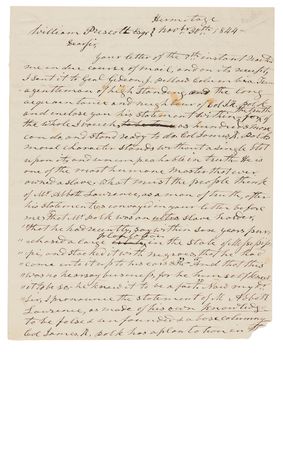 Hermitage
William Prescott Esqr Novr 30th 1844—
Dear sir,
Your letter of the 8th instant reached
me in due course of mail, and on its receipt
I sent it to Genl Gideon J. Pillow Columbia Tenn
a gentleman of high standing and the long
acquaintance and neighbour of Col J. K. Polk
and enclose you his statement
the whole of which
can do, and stand ready to do. Col James K. Polks
moral character stands without a single blot
upon it, and unimpeachable in truth. He is
one of the most humane masters that ever
owned a slave. What must the people think
of Mr. Abbott Lawrence, as a man of truth, after
his statement, as conveyed in your letter before
me, that Mr. Polk was an ultra slave
that he had recently, say within
a large in the state of Mississip-
pi, and stocked it with negroes, that he had
come into it by his own and that this
was no hearsay business, for he himself knew
it to be so, he knew it to be a fact. Now my dr
Sir, I pronounce the statement of Mr. Abbott
Lawrence, as made of his own knowledge
to be false & unfounded & a base calumny
Col James K. Polk has a plantation in